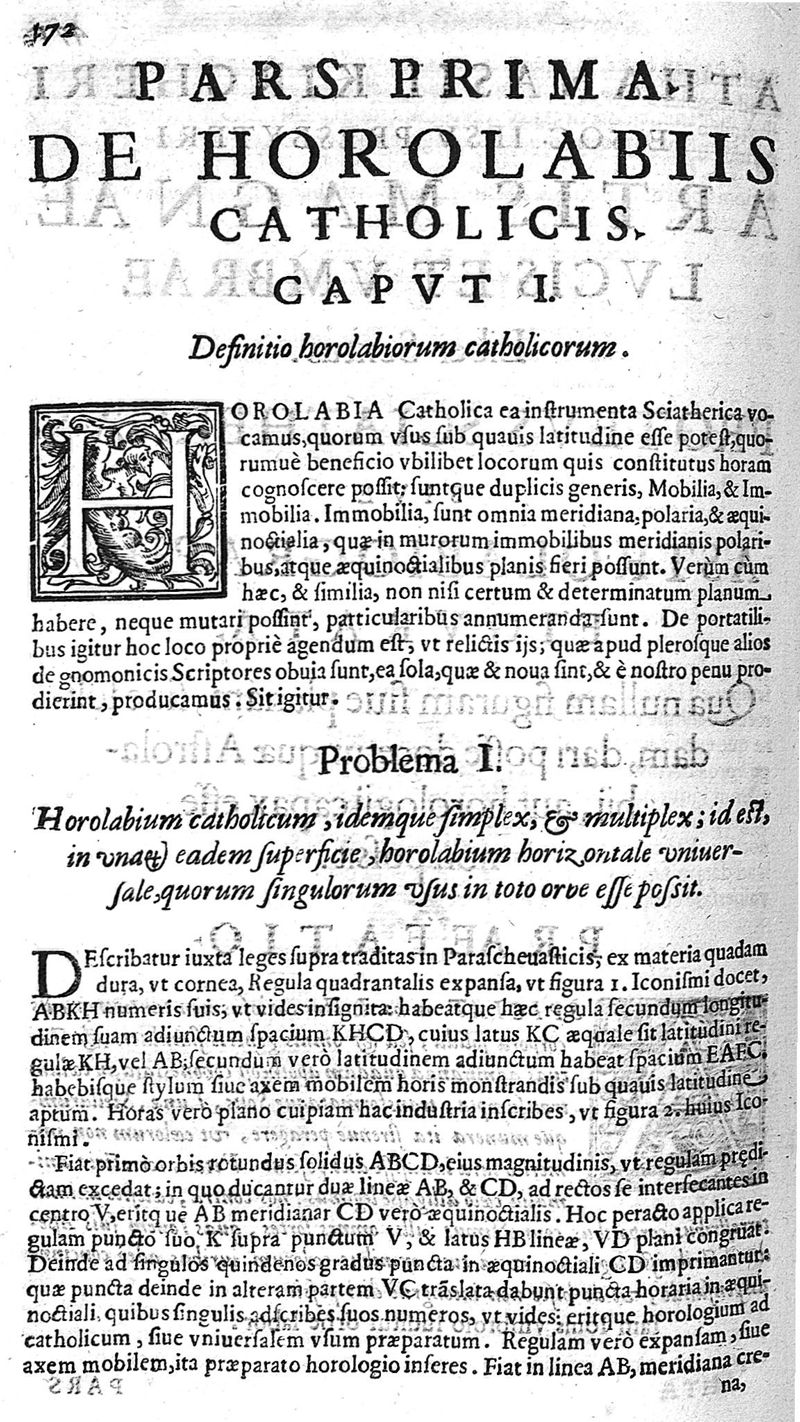 172
PARS PRIMA.
DE HOROLABIIS
CATHOLICIS.
CAPVT I.
Definitio horolabiorum catholicorum.
HOROLABIA Catholica ea inſtrumenta Sciatherica vo-
camus, quorum vſus ſub quauis latitudine eſſe poteſt, quo-
rumuè beneficio vbilibet locorum quis conſtitutus horam
cognoſcere poſſit; ſuntque duplicis generis, Mobilia, & Im-
mobilia. Immobilia, ſunt omnia meridiana, polaria, & æqui-
noctialia, quæ in murorum immobilibus meridianis polari-
bus, atque æquinoctialibus planis fieri poſſunt. Verùm cùm
hæc, & ſimilia, non niſi certum & determinatum planum
habere, neque mutari poſſint, particularibus annumeranda ſunt. De portatili-
bus igitur hoc loco propriè agendum eſt, vt relictis ijs, quæ apud pleroſque alios
de gnomonicis Scriptores obuia ſunt, ea ſola, quæ & noua ſint, & è noſtro penu pro-
dierint, producamus. Sit igitur.
Problema I.
Horolabium catholicum, idemque ſimplex, & multiplex; id eſt,
in vnaq́; eadem ſuperficie, horolabium horizontale vniuer-
ſale, quorum ſingulorum vſus in toto orve eſſe poſsit.
DEſcribatur iuxta leges ſupra traditas in Paraſcheuaſticis, ex materia quadam
dura, vt cornea, Regula quadrantalis expanſa, vt figura 1. Iconiſmi docet,
ABKH numeris ſuis, vt vides inſignita: habeatque hæc regula ſecundum longitu-
dinem ſuam adiunctum ſpacium KHCD, cuius latus KC æquale ſit latitudini re-
gulæ KH, vel AB; ſecundùm verò latitudinem adiunctum habeat ſpacium EAFC.
habebiſque ſtylum ſiue axem mobilem horis monſtrandis ſub quauis latitudine
aptum. Horas verò plano cuipiam hac induſtria inſcribes, vt figura 2. huius Ico-
niſmi.
Fiat primò orbis rotundus ſolidus ABCD, eius magnitudinis, vt regulam prędi-
ctam excedat; in quo ducantur duæ lineæ AB, & CD, ad rectos ſe interſecantes in
centro V, eritque AB meridiana, CD verò æquinoctialis. Hoc peracto applica re-
gulam puncto ſuo, K ſupra punctum V, & latus HB lineæ, VD plani congruat.
Deinde ad ſingulos quindenos gradus puncta in æquinoctiali CD imprimantur:
quæ puncta deinde in alteram partem VC trãslata dabunt puncta horaria in æqui-
noctiali, quibus ſingulis adſcribes ſuos numeros, vt vides; eritque horologium ad
catholicum, ſiue vniuerſalem vſum præparatum. Regulam verò expanſam, ſiue
axem mobilem, ita præparato horologio inſeres. Fiat in linea AB, meridiana cre-
na,